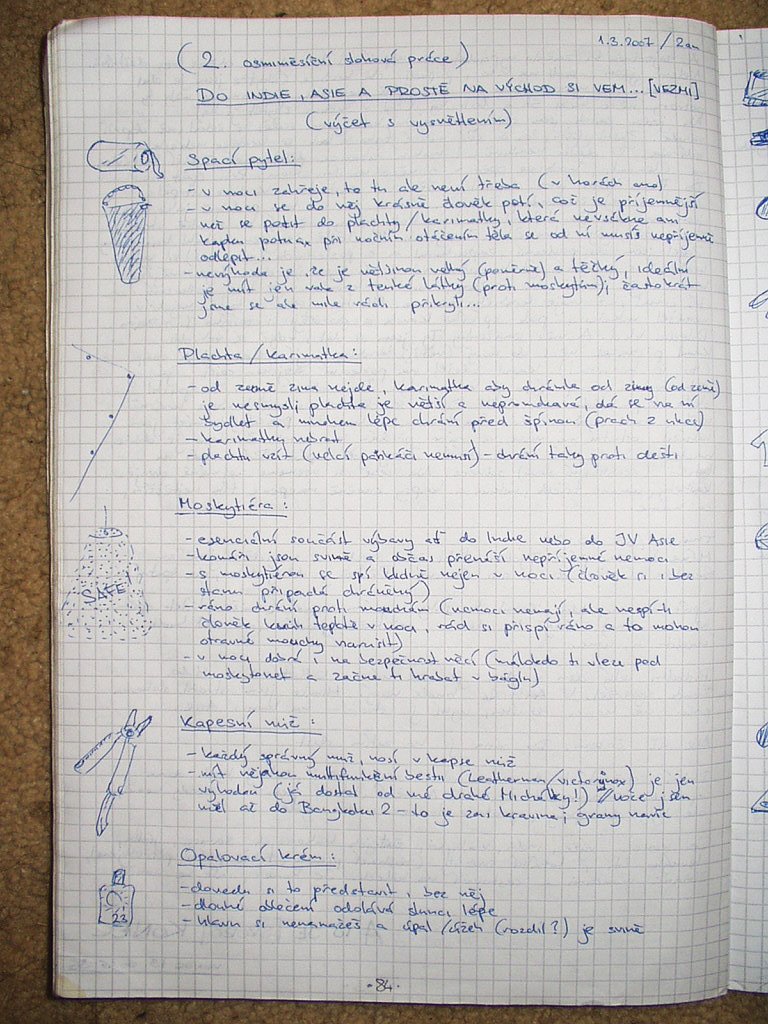 1.3.2007 / 2am
(2. osmiměsíční slohová práce)
DO INDIE, ASIE A PROSTĚ NA VÝCHOD SI VEM... [VEZMI]
(výčet s vysvětlením)
Spací pytel:
- v noci zahřeje, to tu ale není třeba (v horách ano)
- v noci se do něj krásně člověk potí, což je příjemnější
než se potit do plachty/karimatky, která nevsákne ani
kapku potu a při nočním otáčením těla se od ní musíš nepříjemně
odlepit...
- nevýhoda je, že je většinou velký (poměrně) a těžký, ideální
je mít jen vak z tenké látky (proti moskytům), častokrát
jsme se ale mile rádi přikryli...
Plachta / karimatka:
- od země zima nejde, karimatka aby chránila od zimy (od země)
je nesmysl, plachta je větší a nepromokavá, dá se na ní
bydlet a mnohem lépe chrání před špínou (prach z ulice)
- karimatky nebrat
- plachtu vzít (velcí pankáči nemusí) - chrání taky proti dešti
Moskytiéra:
- esenciální součást výbavy ať do Indie nebo do JV Asie
- komáři jsou svině a občas přenáší nepříjemné nemoci
- s moskytiérou se spí klidně nejen v noci (člověk si i bez
stanu připadá chráněný)
- ráno chrání proti mouchám (nemoci nemají, ale nespí-li
člověk kvůli teplotě v noci, rád si přispí ráno a to mohou
otravné mouchy narušit)
- v noci dobrá i na bezpečnost věcí (málokdo ti vleze pod
moskytonet a začne ti hrabat v báglu)
SAFE!
Kapesní nůž:
- každý správný muž, nosí v kapse nůž
- mít nějakou multifunkční bestii (Leatherman/victorinox) je jen
výhodou (já dostal od mé drahé Michálky!) // jsem
měl až do Bangkoku 2 - to je zas kravina, gramy navíc
Opalovací krém:
- dovedu si to představit i bez něj
- dlouhé oblečení odolává slunci lépe
- hlavu si nenamažeš a úpal/úžeh (rozdíl?) je svině
23
· 84 ·